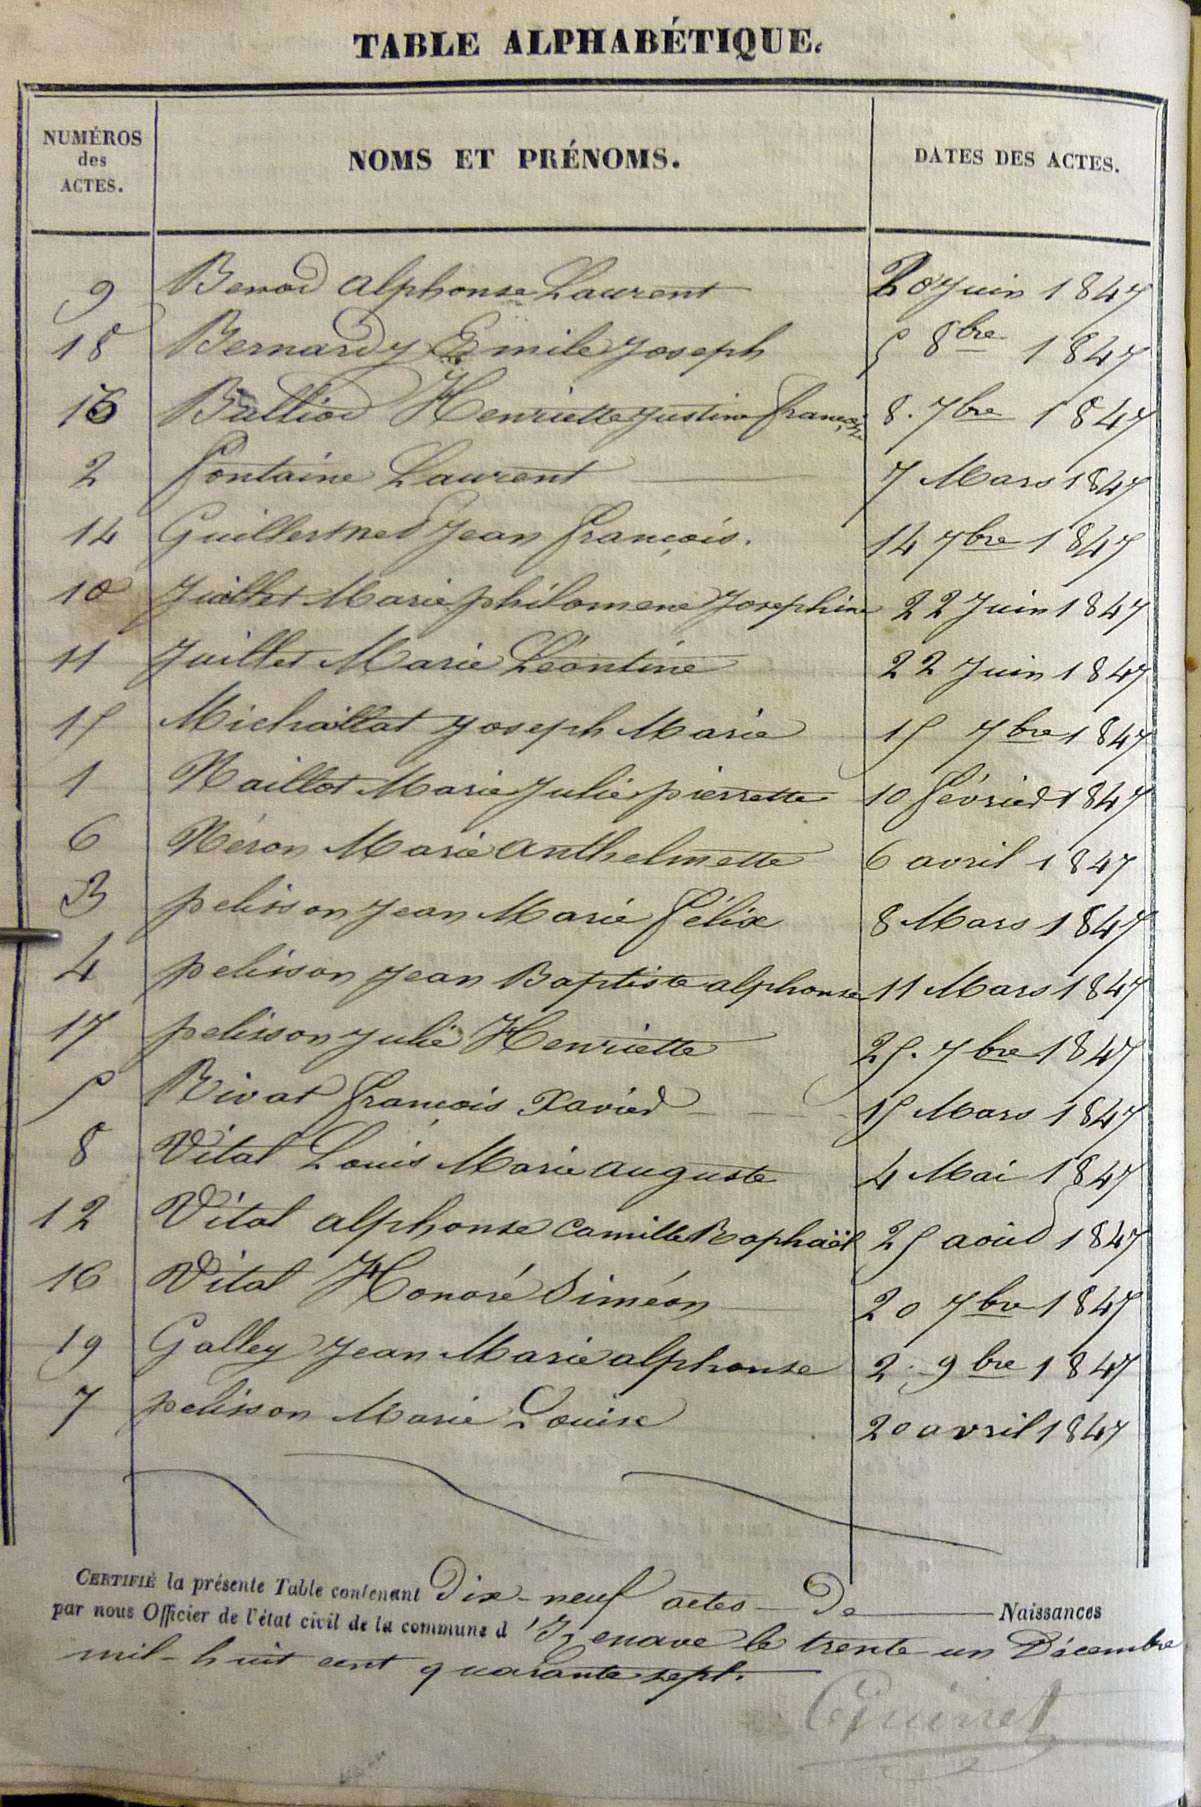 TABLE ALPHABÉTIQUE.
NUMÉROS des ACTES. NOMS ET PRÉNOMS. DATES DES ACTES.
9 Benod alphonse Laurent 20 Juin 1847
18 Bernardy Emile Joseph 5 8bre 1847
13 Balliod Henriette Justine françoise 8. 7bre 1847
2 fontaine Laurent 7 Mars 1847
14 Guillermet Jean françois. 14 7bre 1847
10 Juillet Marie philomene Josephine 22 Juin 1847
11 Juillet Marie Léontine 22 Juin 1847
15 Michallat Joseph Marie 15 7bre 1847
1 Naillot Marie Julie pierrette 10 février 1847
6 Néron Marie anthelmette 6 avril 1847
3 pelisson Jean Marie félix 8 Mars 1847
4 pelisson Jean Baptiste alphonse 11 Mars 1847
17 pelisson Julie Henriette 25. 7bre 1847
5 Rivat françois Xavier 15 Mars 1847
8 Vital Louis Marie auguste 4 Mai 1847
12 Vital alphonse Camille Raphaël 25 août 1847
16 Vital Honoré Siméon 20 7bre 1847
19 Galley Jean Marie alphonse 2. 9bre 1847
7 pelisson Marie Louise 20 avril 1847
CERTIFIÉ la présente Table contenant Dix-neuf actes De Naissances
par nous Officier de l'état civil de la commune d'Izenave le trente un Décembre
mil-huit cent quarante sept.